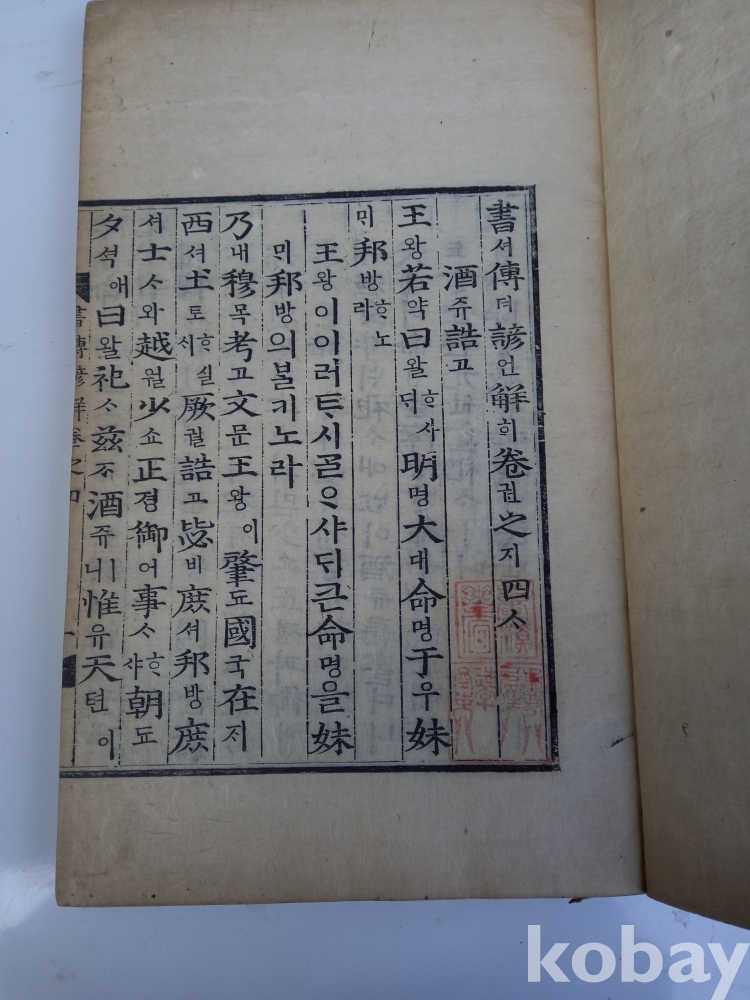 書셔傳뎐諺언解ᄒᆡ卷권之지四ᄉᆞ
酒쥬誥고
王왕若약曰왈ᄒᆞ샤ᄃᆡ明명大대命명于우妹
ᄆᆡ邦방ᄒᆞ노라
王왕이이러ᄐᆞ시ᄀᆞᆯᄋᆞ샤ᄃᆡ큰命명을妹
ᄆᆡ邦방의ᄇᆞᆯ키노라
乃내穆목考고文문王왕이肇됴國국在ᄌᆡ
西셔土토ᄒᆞ실ᄉᆡ厥궐誥고毖비庶셔邦방庶
셔士ᄉᆞ와越월少쇼正졍御어事ᄉᆞᄒᆞ샤朝됴
夕셕애曰왈祀ᄉᆞ玆ᄌᆞ酒쥬ㅣ니惟유天텬이
書傳諺解卷之四
一
kobay